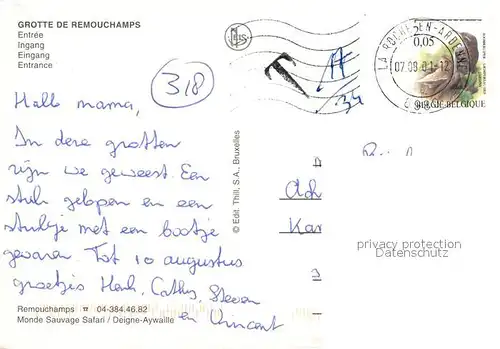 GROTTE DE REMOUCHAMPS
Entrée
Ingang
Eingang
Entrance
318
Hallo mama,
In deze grotten
zijn we geweest. Een
stuk gelopen en een
stukje met een bootje
gevaren. Tot 10 augustus
groetjes Henk, Cathy, Steven
en Vincent
Remouchamps ☎ 04-384.46.82
Monde Sauvage Safari / Deigne-Aywaille
© Edit. Thill, S.A., Bruxelles
T
LA ROCHE-EN-ARDENNE
07.08.01-12
2
0,05
BELGIE BELGIQUE
privacy protection
Datenschutz